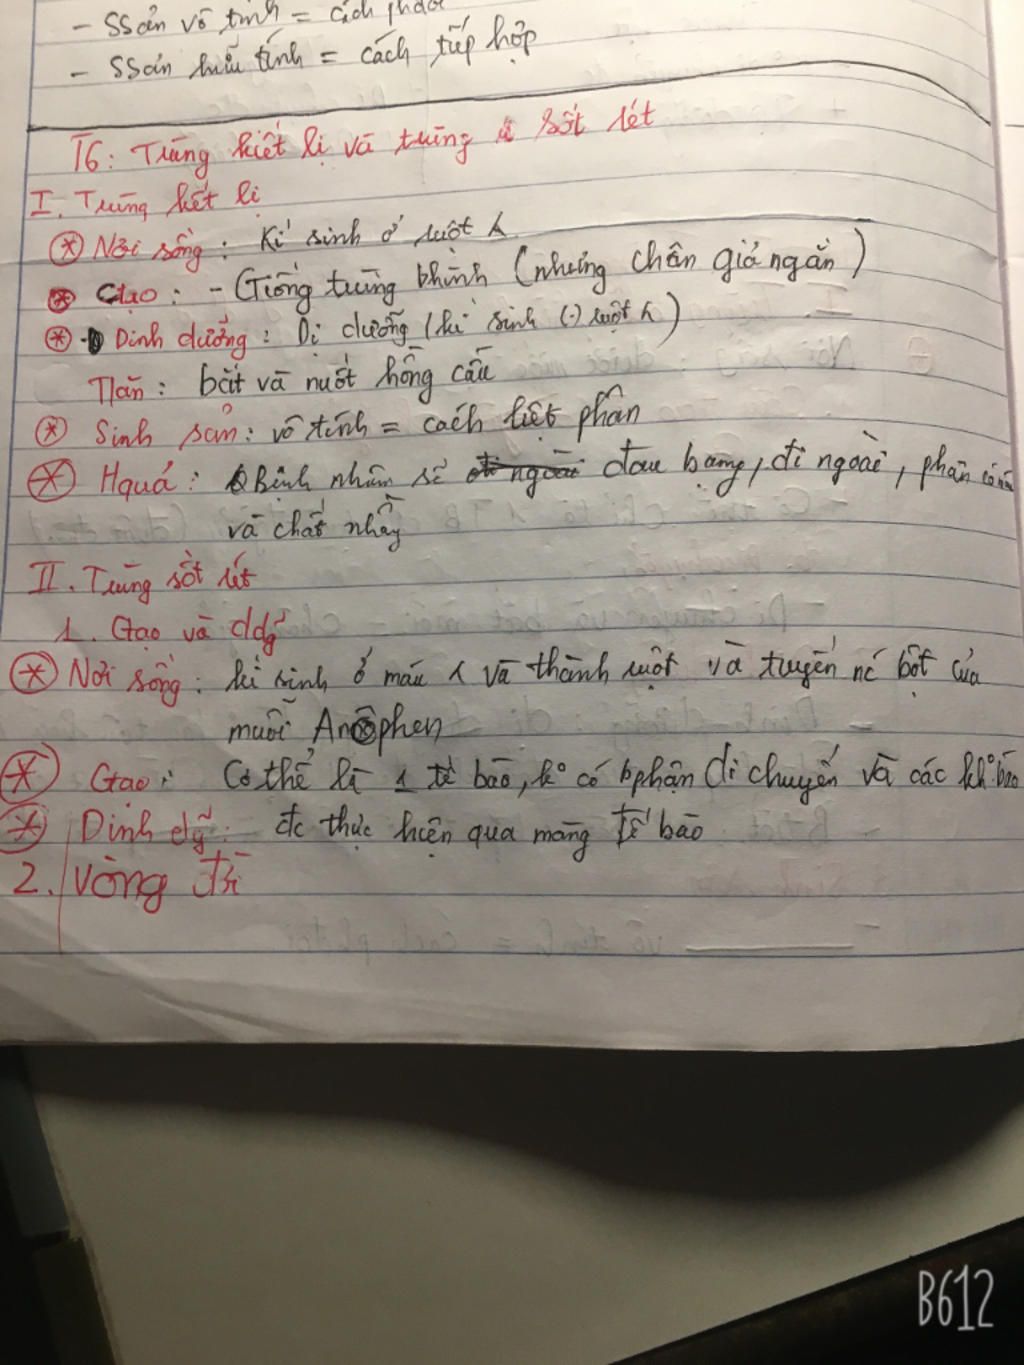 - SSản vô tính = cách phân
- SSản hữu tính = cách tiếp hợp
T6: Trùng kiết lị và trùng sốt rét
I. Trùng kết lị
* Nơi sống: Kí sinh ở ruột
* Ctạo: - Giống trùng bhình (nhưng chân giả ngắn)
* Dinh dưỡng: Dị dưỡng (kí sinh (.) ruột )
Tlăn: bắt và nuốt hồng cầu
* Sinh sản: vô tính = cách liệt phân
* Hquả: Bệnh nhân sẽ đau bụng, đi ngoài, phân có
và chất nhầy
II. Trùng sốt rét
1. Ctạo và ddg
* Nơi sống: kí sinh ở máu và thành ruột và tuyến nc bọt của
muỗi Anôphen
* Ctạo: Cơ thể là 1 tế bào, ko có bphận di chuyển và các kho bào
* Dinh dg: đc thực hiện qua màng tế bào
2. Vòng đời
B612